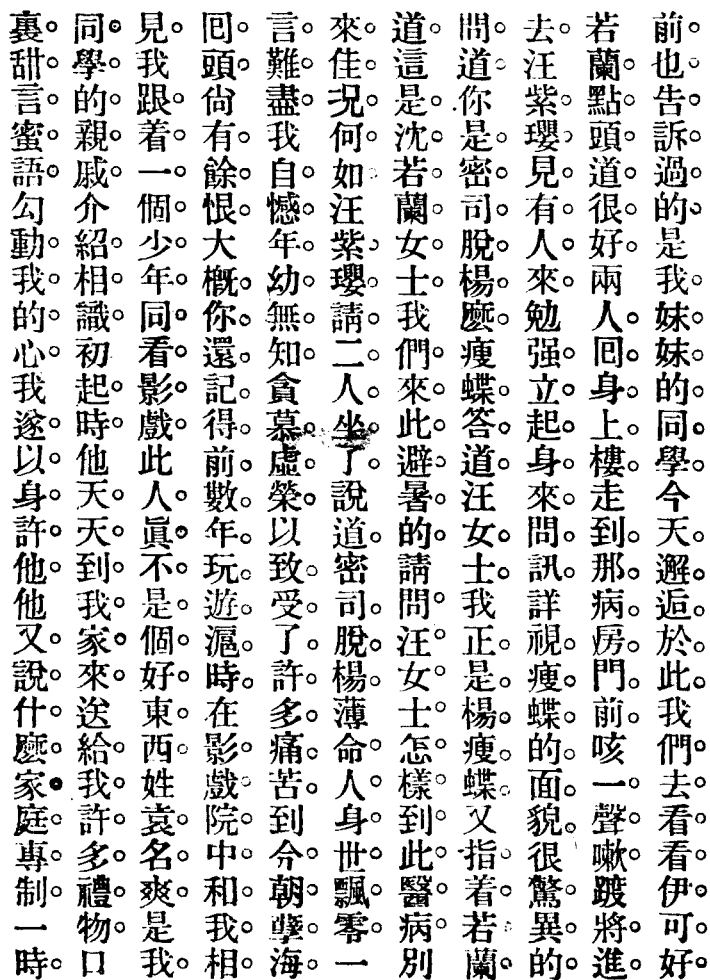 前也告訴過的是我妹妹的同學今天邂逅於此我們去看看伊可好
若蘭點頭道很好兩人囘身上樓走到那病房門前咳一聲嗽踱將進
去汪紫瓔見有人來勉强立起身來問訊詳視瘦蝶的面貌很驚異的
問道你是密司脫楊麽瘦蝶答道汪女士我正是楊瘦蝶又指着若蘭
道這是沈若蘭女士我們來此避暑的請問汪女士怎樣到此醫病別
來佳况何如汪紫瓔請二人坐了說道密司脫楊薄命人身世飄零一
言難盡我自憾年幼無知貪慕虛榮以致受了許多痛苦到今朝孽海
囘頭尙有餘恨大概你還記得前數年玩遊滬時在影戲院中和我相
見我跟着一個少年同看影戲此人眞不是個好東西姓袁名爽是我
同學的親戚介紹相識初起時他天天到我家來送給我許多禮物口
裏甜言蜜語勾動我的心我遂以身許他他又說什麽家庭專制一時